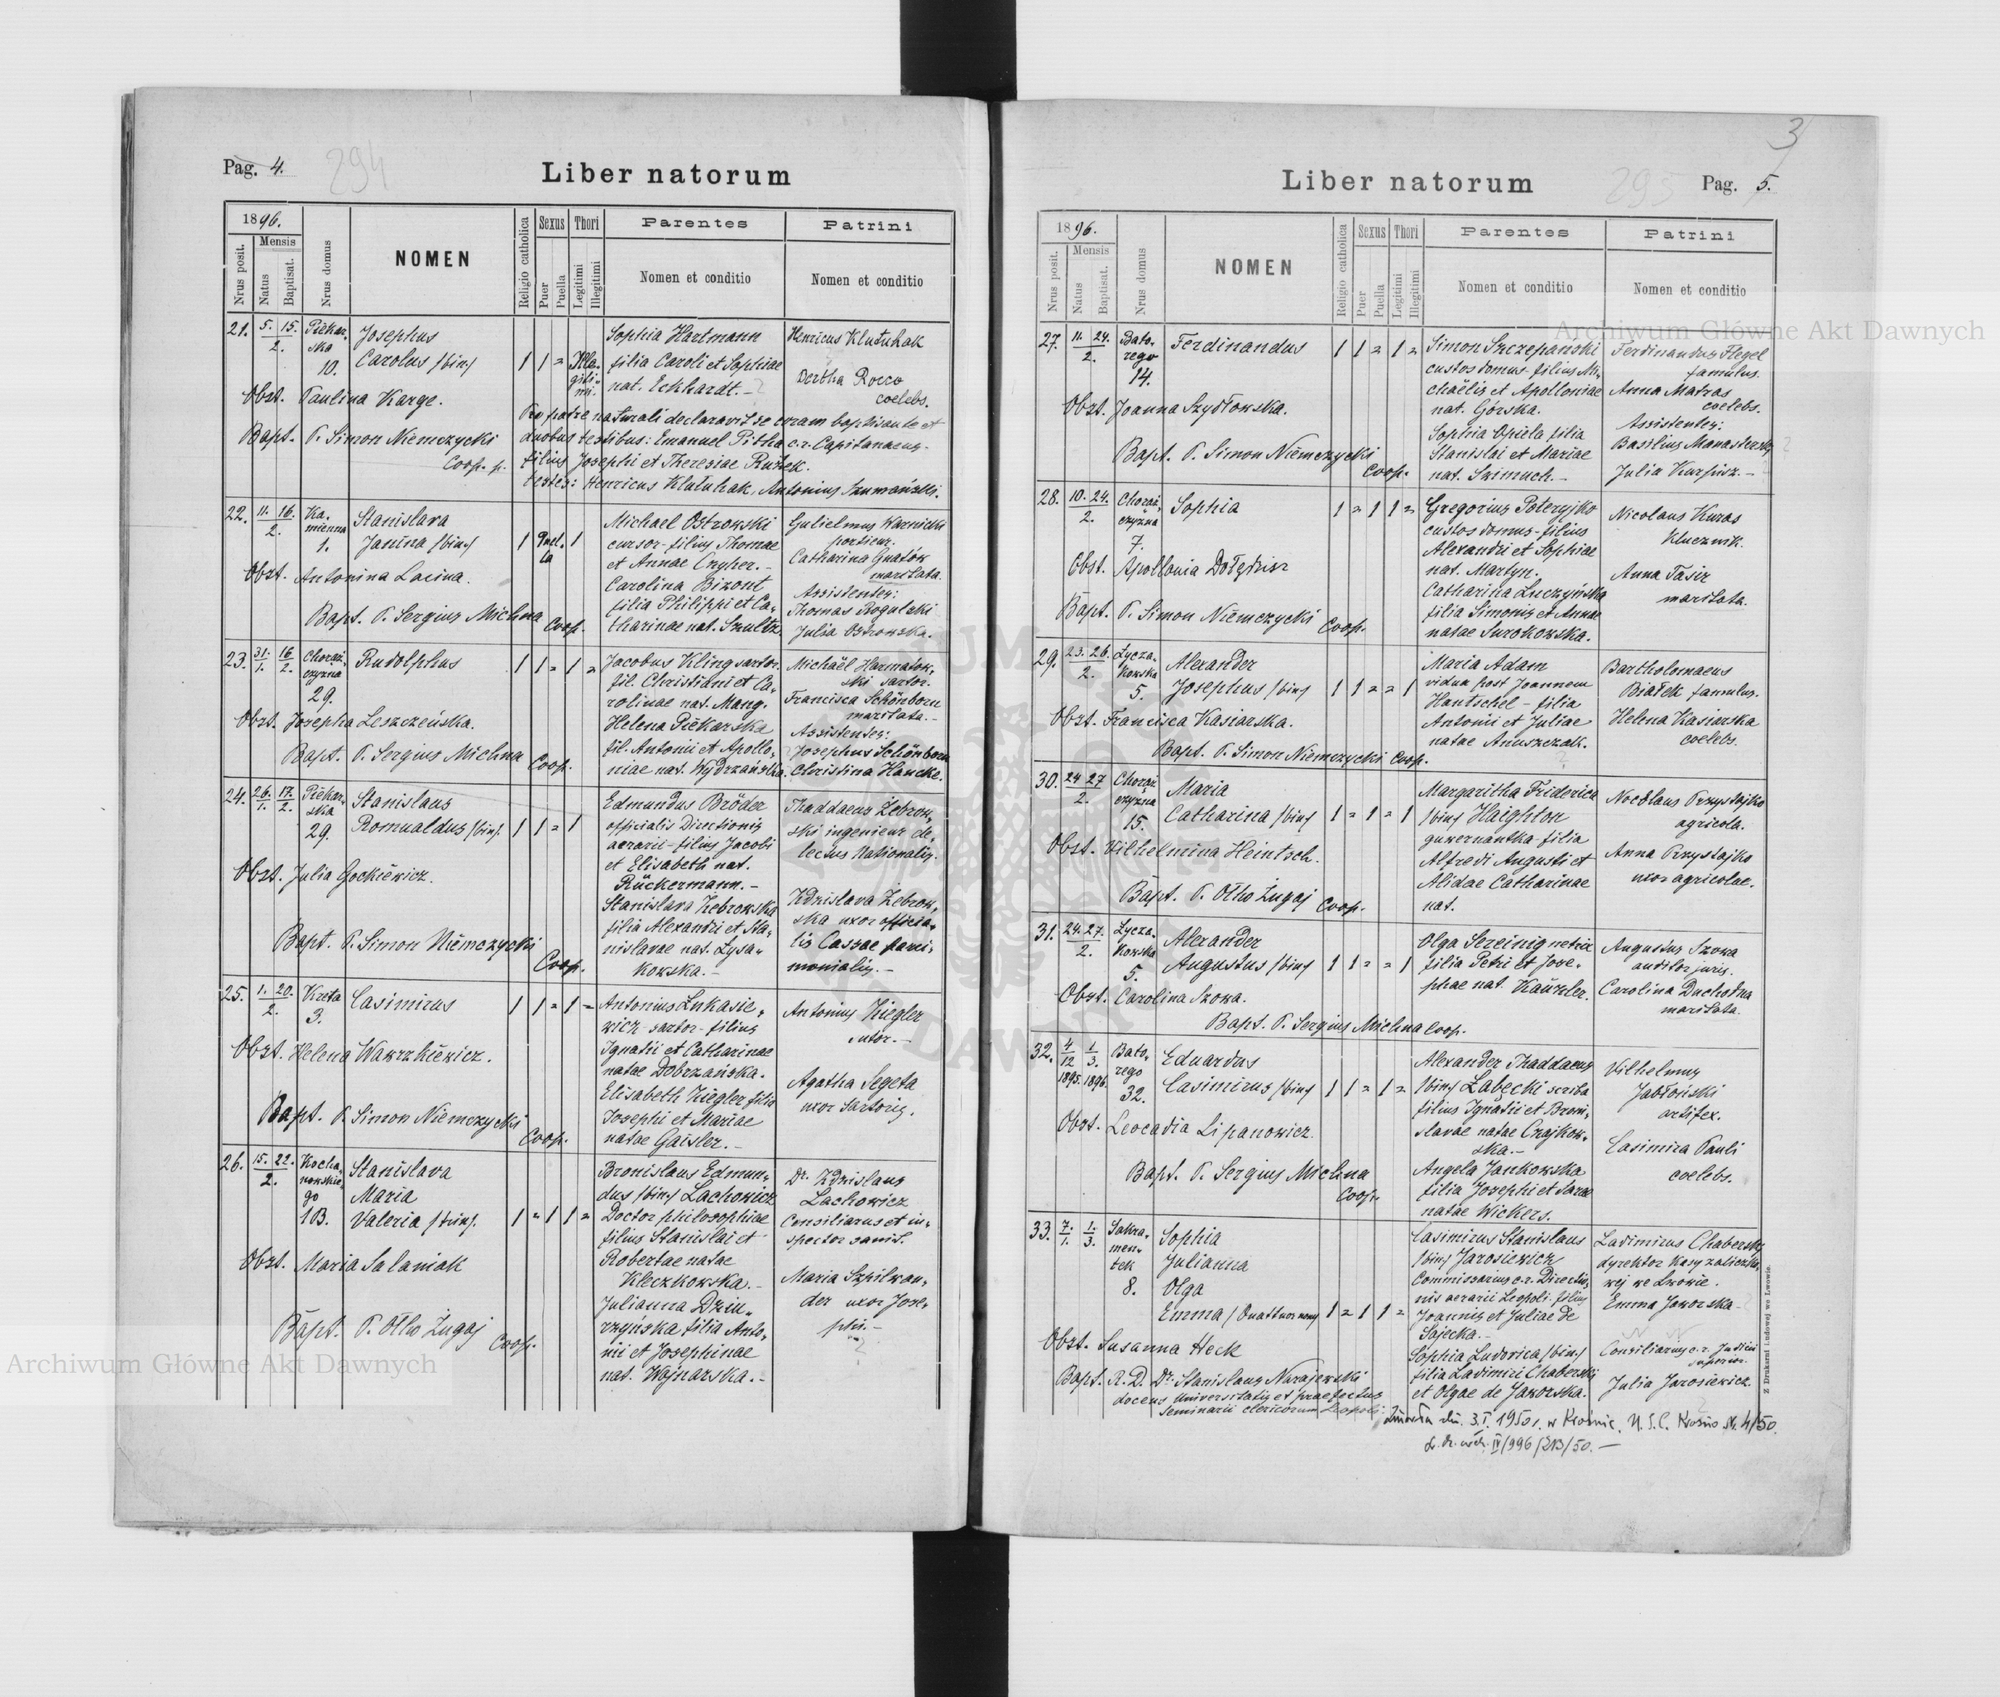 Pag. 4.
294
Liber natorum
1896.
Nrus posit.
Mensis
Natus
Baptisat.
Nrus domus
NOMEN
Religio catholica
Sexus
Puer
Puella
Thori
Legitimi
Illegitimi
Parentes
Nomen et conditio
Patrini
Nomen et conditio
21. 5. 15. Piekar-
2. ska
10.
Josephus
Carolus /bin/
1 1 =
Sophia Hartmann
filia Caroli et Sophiae
nat. Eckhardt. -
Henricus Klutuhak
Bertha Rocco
coelebs.
Obst. Paulina Karge.
Bapt. P. Simon Niemczycki
Coop. p.
Pro patre naturali declaravit se coram baptisante et
duobus testibus: Emanuel Pitha c.r. Capitanaeus.
filius Josephi et Theresiae Ružek.
testes: Henricus Klutuhak, Antonius Szumański.
22. 11. 16. Ka-
2. mienna
1.
Stanislava
Janina /bin./
1 Puel- 1
la
Michael Ostrowski
cursor - filius Thomae
et Annae Cnyher. -
Carolina Bizont
filia Philippi et Ca-
tharinae nat. Szultz.
Gulielmus Warnicki
portieur.
Catharina Gnatów
maritata.
Assistentes:
Thomas Rogulski
Julia Ostrowska.
Obst. Antonina Lacina.
Bapt. P. Sergius Michna
Coop.
23. 31. 16. Chorąż-
1. 2. czyzna
29.
Rudolphus
1 1 = 1 =
Jacobus Kling sartor.
fil. Christiani et Ca-
rolinae nat. Mang.
Helena Piekarska
fil. Antonii et Apollo-
niae nat. Wydrzańska.
Michaël Harmatow-
ski sartor.
Francisca Schönborn
maritata. -
Assistentes:
Josephus Schönborn
Christina Hancke.
Obst. Josepha Leszczeńska.
Bapt. P. Sergius Michna
Coop.
24. 26. 17. Piekar-
1. 2. ska
29.
Stanislaus
Romualdus /bin/.
1 1 = 1
Edmundus Bröder
officialis Directionis
aerarii - filius Jacobi
et Elisabeth nat.
Rückermann. -
Stanislava Żebrowska
filia Alexandri et Sta-
nislavae nat. Łysa-
kowska. -
Thaddaeus Żebrow-
ski ingenieur de-
lectus Nationalis.
Zdzislava Żebrow-
ska uxor officia-
lis Cassae parsi-
monialis. -
Obst. Julia Gockiewicz.
Bapt. P. Simon Niemczycki
Coop.
25. 1. 20. Kreta
2. 3.
Casimirus
1 1 = 1 =
Antonius Łukasie-
wicz - sartor - filius
Ignatii et Catharinae
natae Dobrzańska.
Elisabeth Ziegler filia
Josephi et Mariae
natae Gaisler. -
Antonius Ziegler
sutor. -
Agatha Segeta
uxor sartoris.
Obst. Helena Wawrzkiewicz.
Bapt. P. Simon Niemczycki
Coop.
26. 15. 22. Kocha-
2. nowskie-
go
1B.
Stanislava
Maria
Valeria /trin/.
1 = 1 1 =
Bronislaus Edmun-
dus /bin./ Lachowicz
Doctor philosophiae
filius Stanislai et
Robertae natae
Kleczkowska. -
Julianna Dziu-
rzyńska filia Anto-
nii et Josephinae
nat. Wojnarska. -
Dr. Zdzislaus
Lachowicz
Consiliarus et in-
spector sanit.
Maria Szpilwan-
der uxor Jose-
phi. -
Obst. Maria Salaniak
Bapt. P. Otto Żugaj
Coop.
3
Liber natorum
295
Pag. 5.
1896.
Nrus posit.
Mensis
Natus
Baptisat.
Nrus domus
NOMEN
Religio catholica
Sexus
Puer
Puella
Thori
Legitimi
Illegitimi
Parentes
Nomen et conditio
Patrini
Nomen et conditio
27. 11. 24. Bato-
2. rego
14.
Ferdinandus
1 1 = 1 =
Simon Szczepanski
custos domus - filius Mi-
chaëlis et Apolloniae
nat. Górska.
Sophia Opiela filia
Stanislai et Mariae
nat. Szimuch. -
Ferdinandus Flegel
famulus.
Anna Matras
coelebs.
Assistentes:
Basilius Manasterski
Julia Karpisz. -
Obst. Joanna Szydłowska.
Bapt. P. Simon Niemczycki
Coop.
28. 10. 24. Chorąż-
2. czyzna
7.
Sophia
1 = 1 1 =
Gregorius Poteryjko
custos domus - filius
Alexandri et Sophiae
nat. Martyn.
Catharina Łuczyńska
filia Simonis et Annae
natae Surokowska.
Nicolaus Kuras
kluczwik.
Anna Tasiz
maritata.
Obst. Apollonia Dołędzisz
Bapt. P. Simon Niemczycki
Coop.
29. 23. 26. Łycza-
2. kowska
5.
Alexander
Josephus /bin/
1 1 = = 1
Maria Adam
vidua post Joannem
Hantschel - filia
Antonii et Juliae
natae Anuszczak.
Bartholomaeus
Białek famulus.
Helena Kasiarska
coelebs.
Obst. Francisca Kasiarska.
Bapt. P. Simon Niemczycki Coop.
30. 24 27 Chorąż-
2. czyzna
15.
Maria
Catharina /bin/
1 = 1 = 1
Margaritha Friderica
/bin/ Haighton
guwernantka - filia
Alfredi Augusti et
Alidae Catharinae
nat.
Nicolaus Przystajko
agricola.
Anna Przystajko
uxor agricolae.
Obst. Vilhelmina Heintsch.
Bapt. P. Otto Żugaj Coop.
31. 24. 27. Łycza-
2. kowska
5.
Alexander
Augustus /bin/
1 1 = = 1
Olga Sereinig netrix
filia Petri et Jose-
phae nat. Kanzler.
Augustus Szowa
auditor juris.
Carolina Duchotna
maritata.
Obst. Carolina Szowa.
Bapt. P. Sergius Michna Coop.
32. 4 1 Bato-
12 3. rego
1895. 1896. 32.
Eduardus
Casimirus /bin/
1 1 = 1 =
Alexander Thaddaeus
/bin/ Łabęcki scriba
filius Ignatii et Broni-
slavae natae Czajkow-
ska. -
Angela Jankowska
filia Josephi et Sarae
natae Wickers.
Vilhelmus
Jabłoński
artifex.
Casimira Pauli
coelebs.
Obst. Leocadia Lipanowicz.
Bapt. P. Sergius Michna
Coop.
33. 7. 1. Sakra-
1. 3. men-
tek
8.
Sophia
Julianna
Olga
Emma /Quattuor nom/
1 = 1 1 =
Casimirus Stanislaus
/bin/ Jarosiewicz
Commissarius c.r. Directio-
nis aerarii Leopoli - filius
Joannis et Juliae de
Sajecka. -
Sophia Ludovica /bin/
filia Ladimiri Chaberski
et Olgae de Jaworska.
Ladimirus Chaberski
dyrektor Kasy zaliczko-
wej we Lwowie.
Emma Jaworska
Consiliarius c.r. Judicii
superior.
Julia Jarosiewicz.
Obst. Susanna Heck
Bapt. R. D. Dr. Stanislaus Narajewski
docens Universitatis et praefectus
Seminarii clericorum Leopoli.
Zmarła dn. 3.I.1950 r. w Krośnie. U.S.C. Krosno Nr. 4/50.
IV/996/ZB/50. -
Z Drukarni Ludowej we Lwowie.
Archiwum Główne Akt Dawnych
Archiwum Główne Akt Dawnych